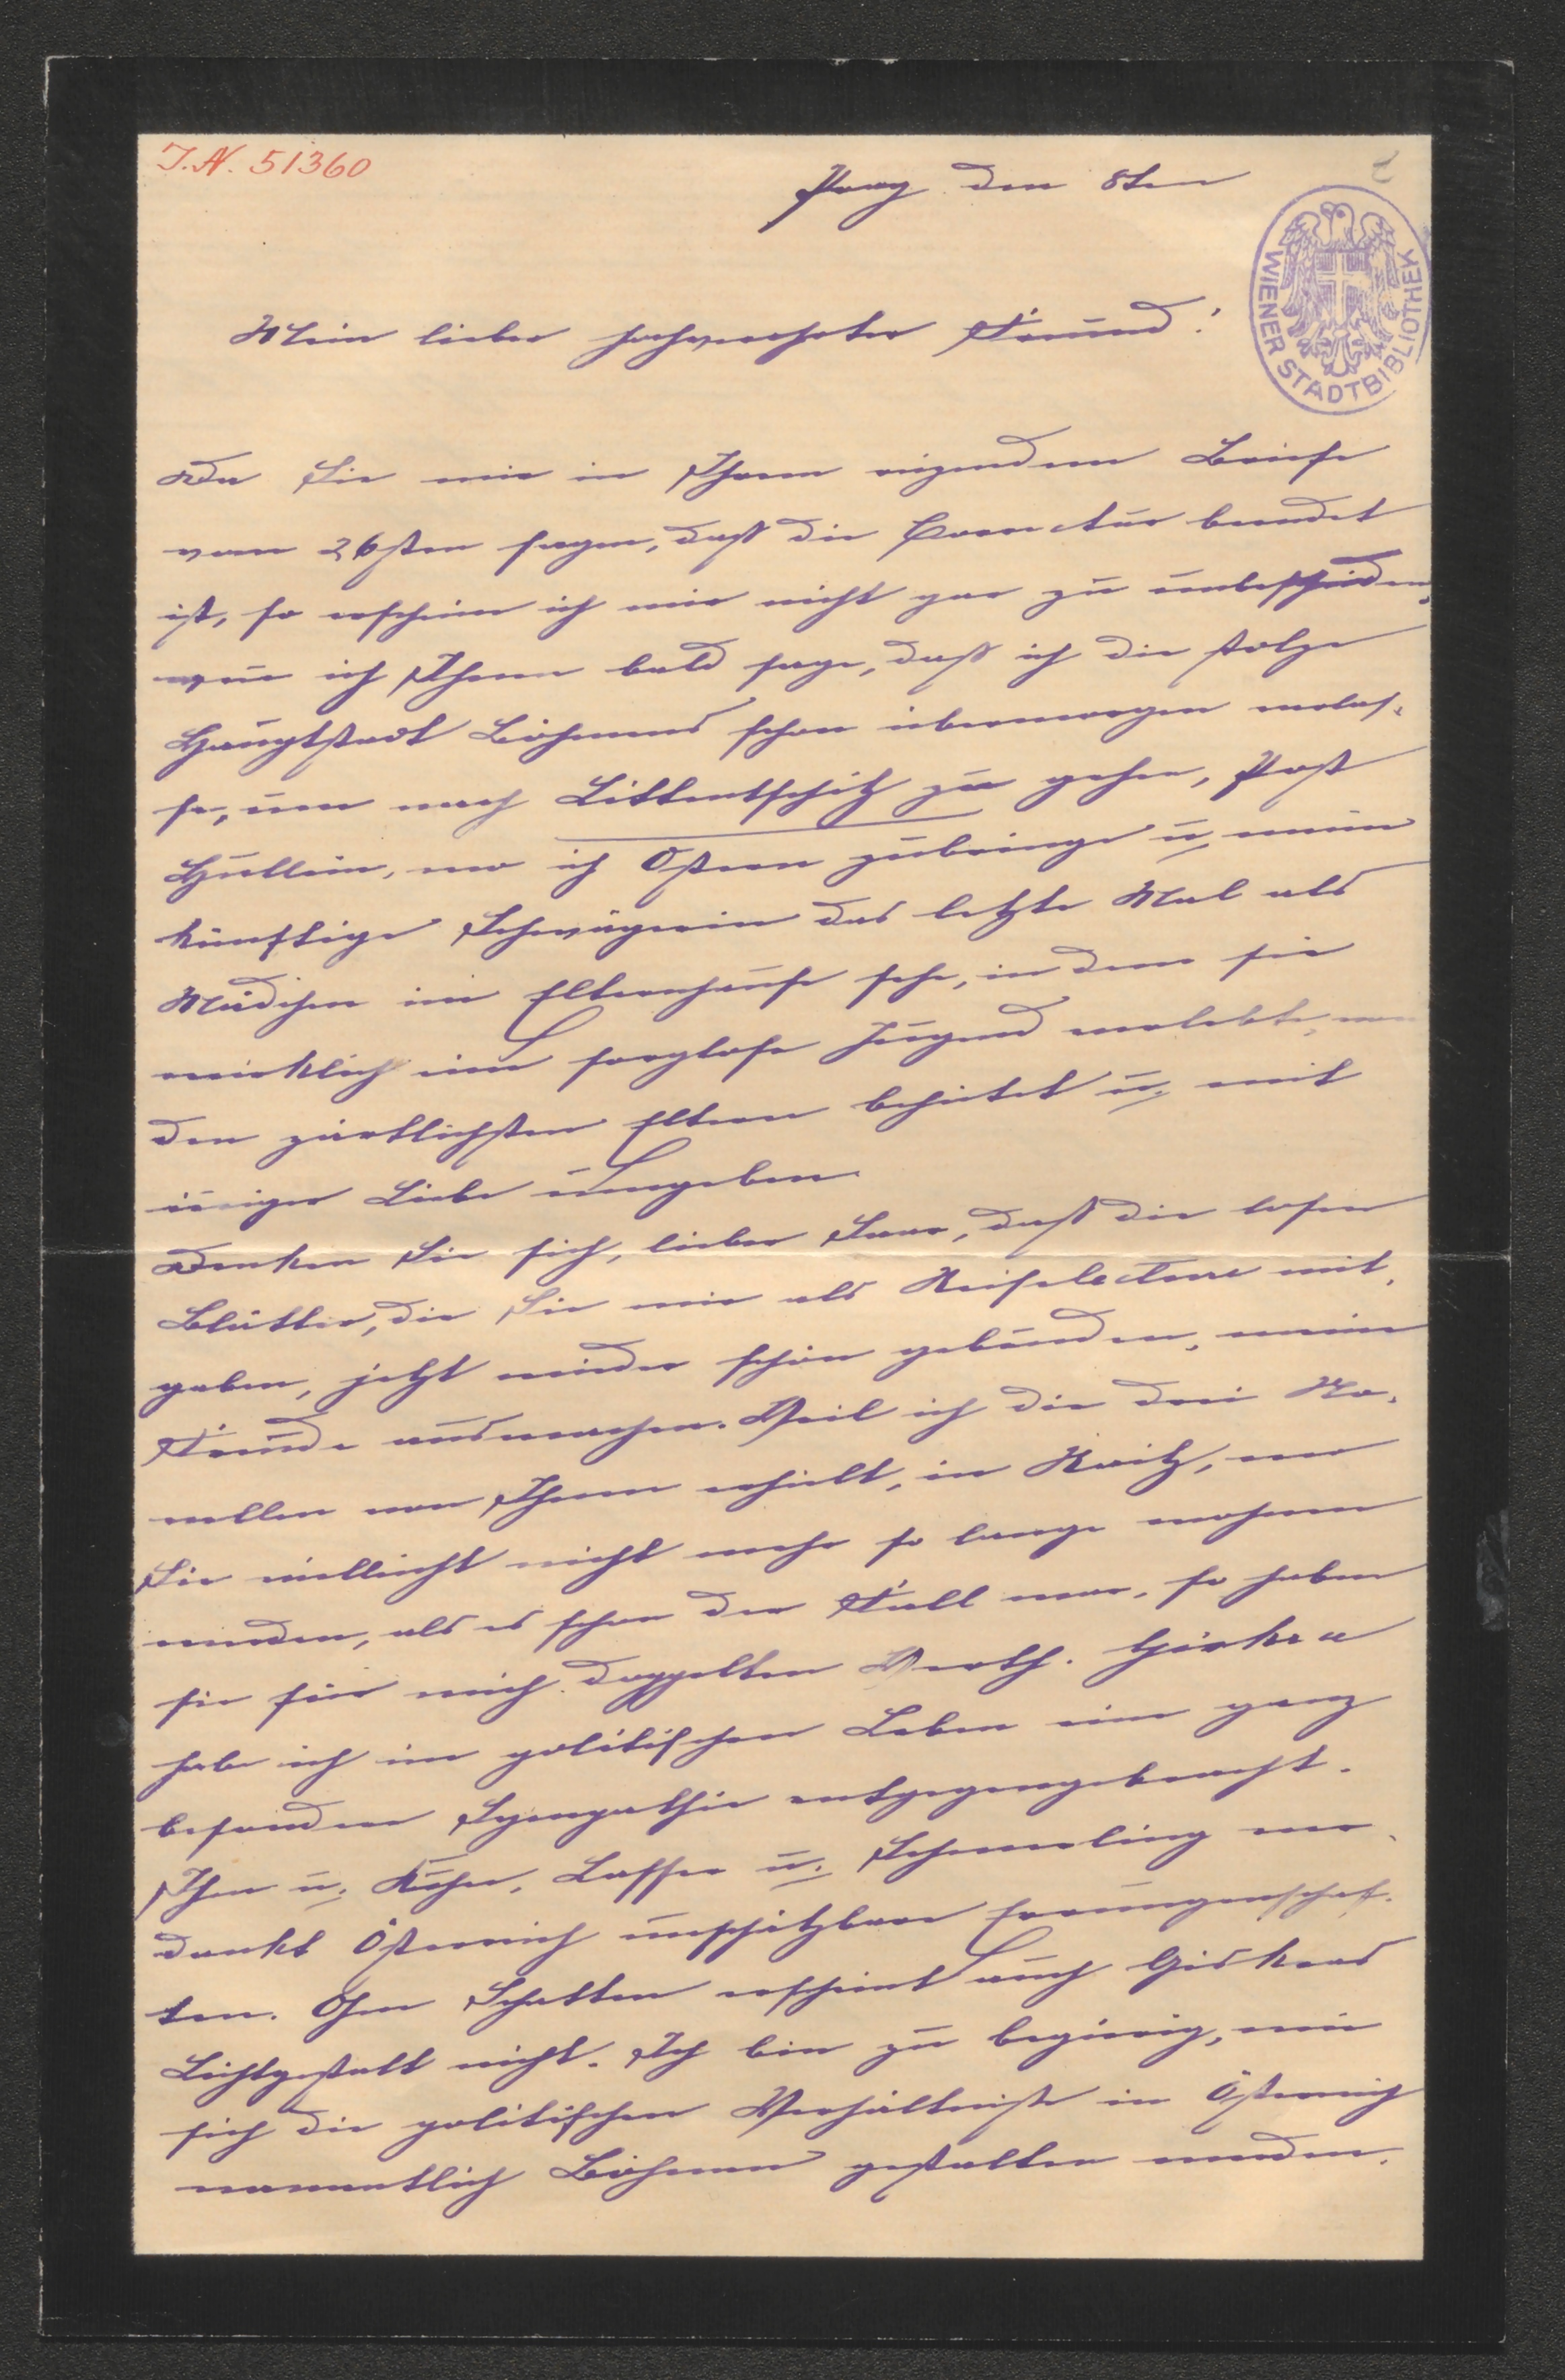 J. N. 51360
Prag den 8ten
WIENER STADTBIBLIOTHEK
Mein lieber hochverehrter Freund!
Da Sie mir in Ihrem reizendem Briefe
vom 26sten sagen, daß die Correctur beendet
ist, so erscheine ich mir nicht gar zu unbescheiden,
wen̄ ich Ihnen bald sage, daß ich die stolze
Hauptstadt Böhmens schon übermorgen verlas-
se, um nach Littentschitz zu gehen, Post
Hullein, wo ich Ostern zubringe u. meine
künftige Schwägerin das letzte Mal als
Mädchen im Elternhause sehe, in dem sie
wirklich eine sorglose Jugend verlebte, von
den zärtlichsten Eltern behütet u. mit
in̄iger Liebe umgeben.
Denken Sie sich, lieber Saar, daß die losen
Blätter, die Sie mir als Reiselecture mit-
gaben, jetzt wieder schön gebunden, meine
Freude ausmachen. Weil ich die drei No-
vellen von Ihnen erhielt, in Raitz, wo
Sie vielleicht nicht mehr so lange wohnen
werden, als es schon der Fall war, so haben
sie für mich doppelten Werth. Giskra
habe ich im politischen Leben eine ganz
besondere Sympathie entgegengebracht.
Ihm u. Kuhn, Lasser u. Schmerling ver-
dankt Österreich unschätzbare Errungenschaf-
ten. Ohne Schatten erscheint auch Giskras
Lichtgestalt nicht. Ich bin zu begierig, wie
sich die politischen Verhältniße in Österreich
namentlich Böhmen gestalten werden.